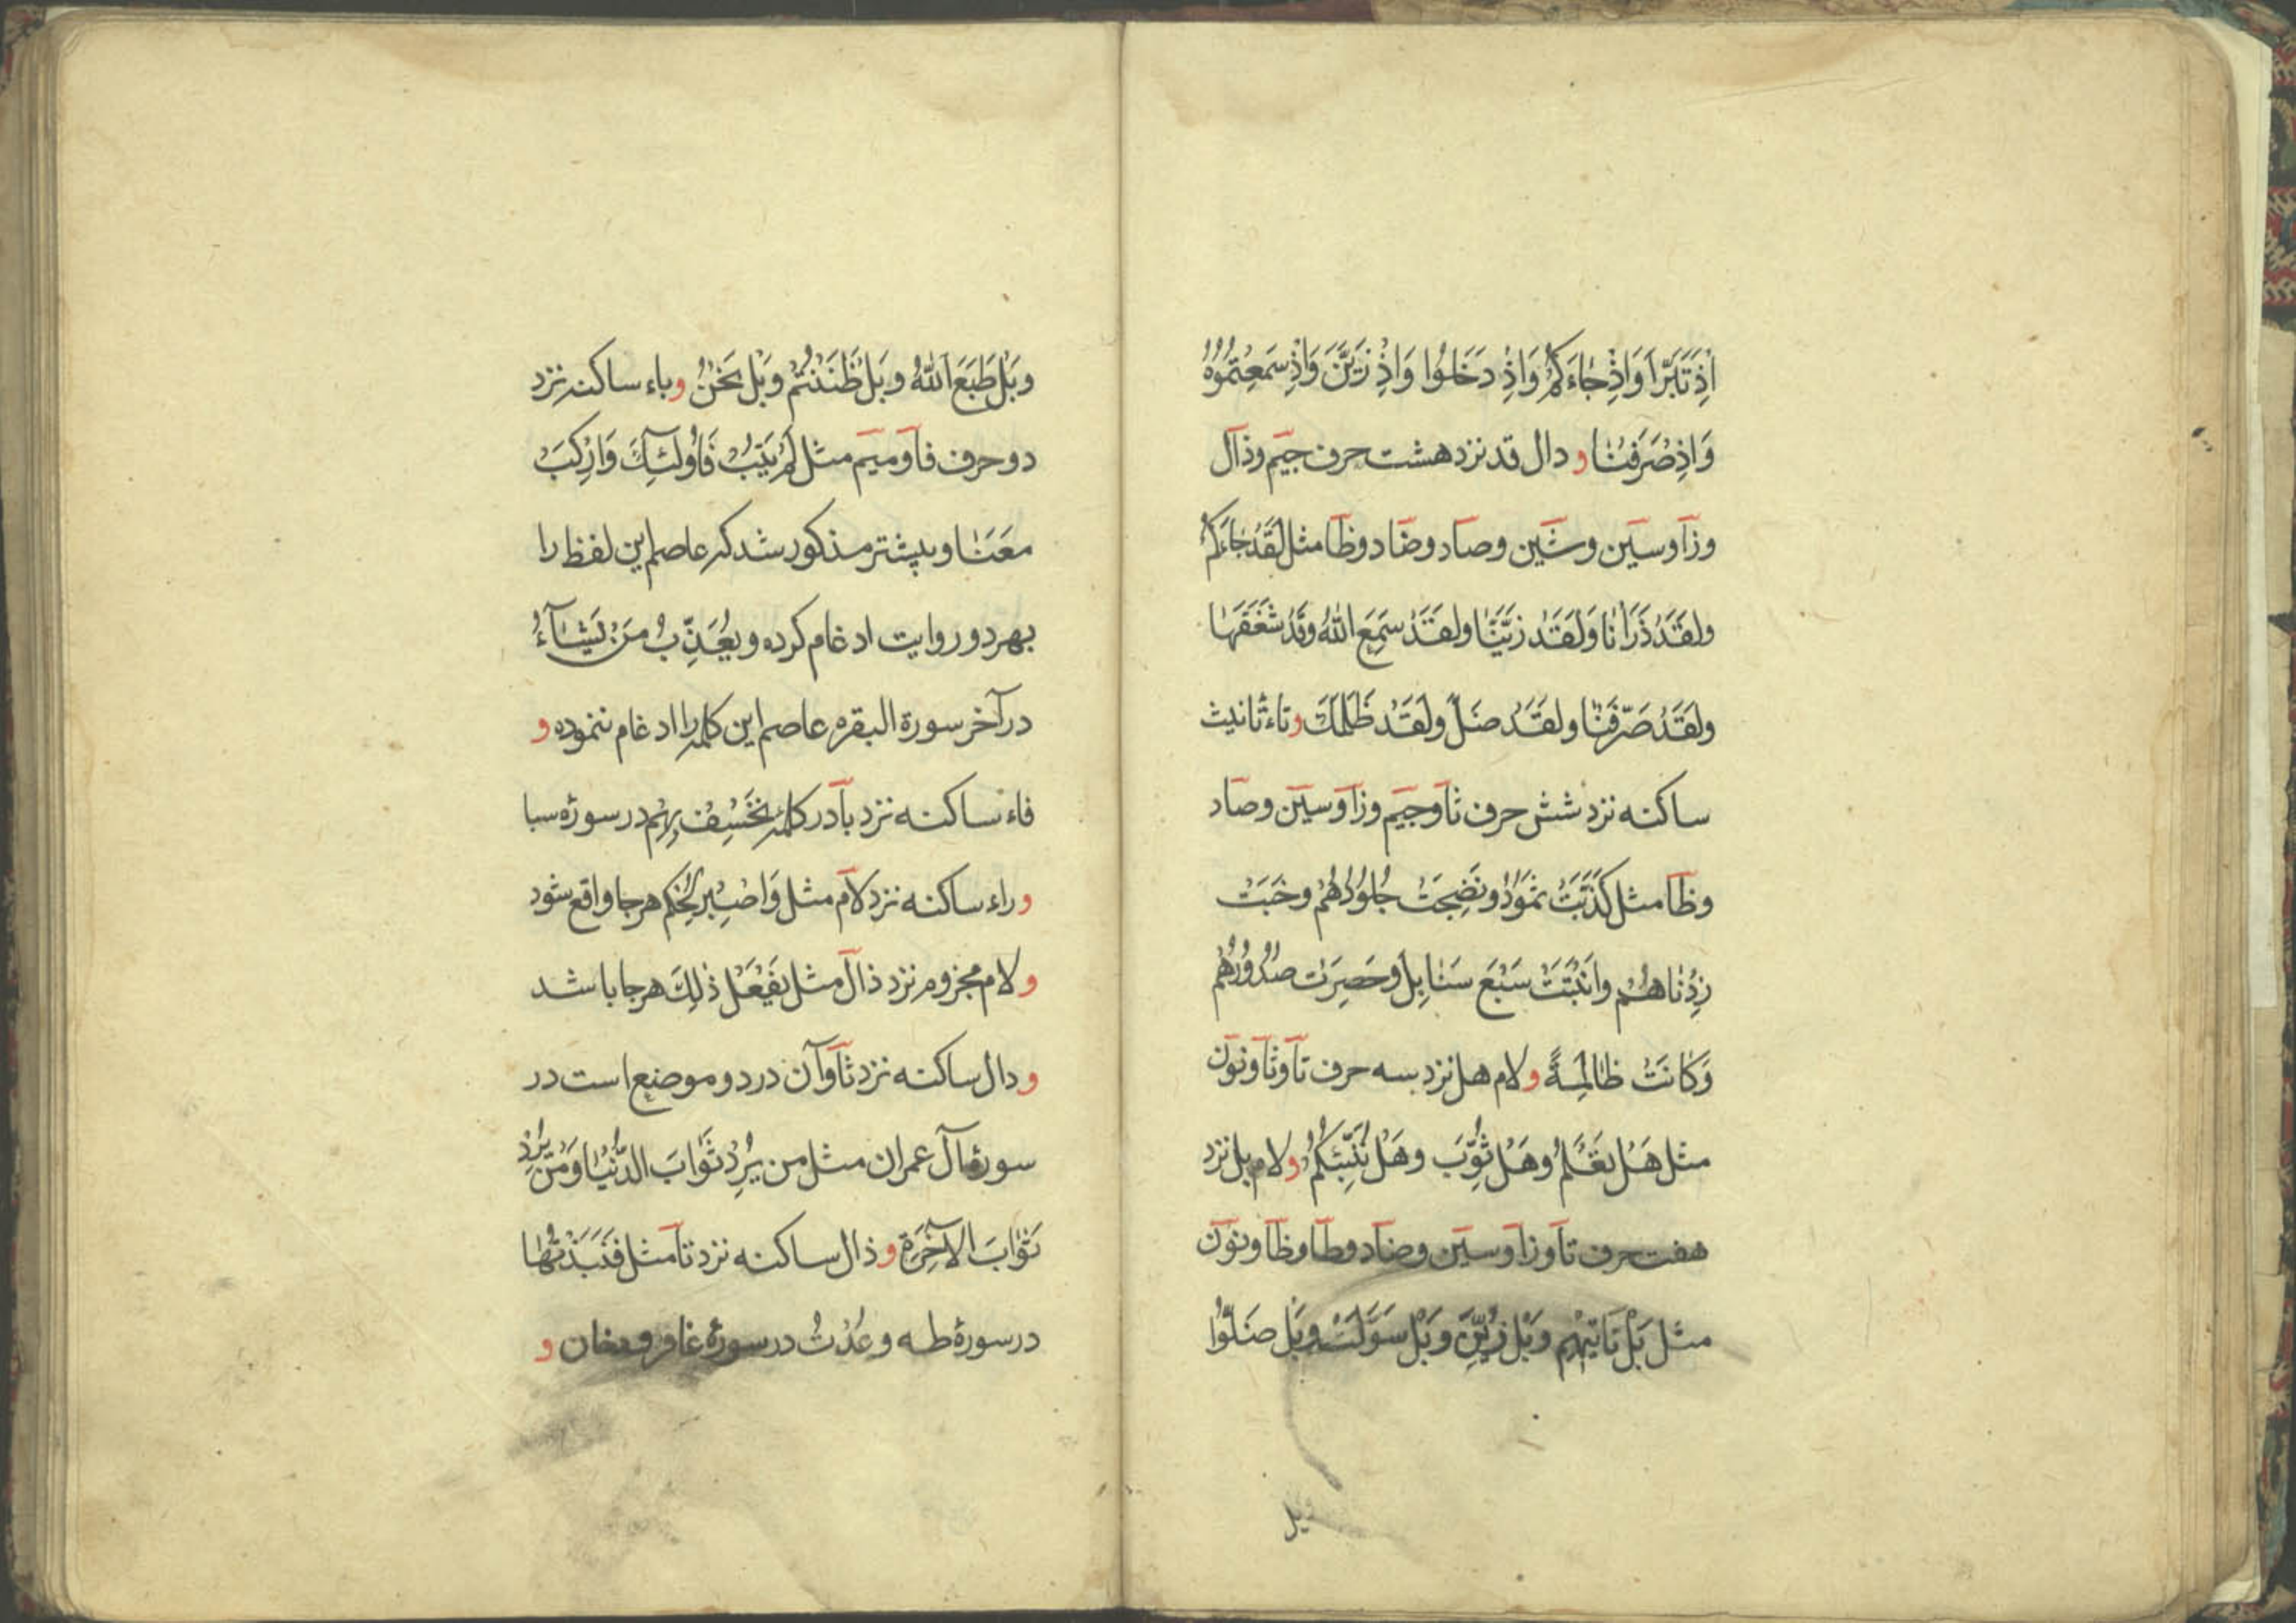 اِذْ تَبَرَّاَ وَاِذْ جَاءَكُمْ وَاِذْ دَخَلُوا وَاِذْ زَيَّنَ وَاِذْ سَمِعْتُمُوهُ
وَاِذْ صَرَفْنَا و دال قد نزد هشت حرف جيم وذال
وزا وسين وشين وصاد وضاد وظا مثل لَقَدْ جَاءَكُمْ
ولَقَدْ ذَرَأنَا وَلَقَدْ زَيَّنَّا ولَقَدْ سَمِعَ اللهُ وقَدْ شَغَفَهَا
ولَقَدْ صَرَّفْنَا ولَقَدْ ضَلَّ ولَقَدْ ظَلَمَكَ وتاء تانيث
ساكنه نزد شش حرف ثا وجيم وزا وسين وصاد
وظا مثل كَذَّبَتْ ثَمُودُ ونَضِجَتْ جُلُودُهُمْ وخَبَتْ
زِدْنَاهُمْ وانْبَتَتْ سَبْعَ سَنَابِلَ وحَصِرَتْ صُدُورُهُمْ
وَكَانَتْ ظَالِمَةً و لام هل نزد سه حرف تا وثا ونون
مثل هَلْ تَعْلَمُ وهَلْ ثُوِّبَ وهَلْ نُنَبِّئُكُمْ ولام بل نزد
هفت حرف تا وزا وسين وضاد وطا وظا ونون
مثل بَلْ تَاتِيهِم وبَلْ زُيِّنَ وبَلْ سَوَّلَتْ وبَل ضَلُّوا
وبل
وبَلْ طَبَعَ اللهُ وبَلْ ظَنَنْتُمْ وبَلْ نَحْنُ وباء ساكنه نزد
دو حرف فا وميم مثل لَمْ يَتُبْ فَاُولَئِكَ وَارْكَبْ
مَعَنَا وپيشتر مذكور شد كه عاصم اين لفظ را
بهر دو روايت ادغام كرده ويُعَذِّبُ مَنْ يَشَآءُ
در آخر سورة البقره عاصم اين كلمه را ادغام ننموده و
فاء ساكنه نزد با در كلمه نَخْسِفْ بِهِمْ در سورۀ سبا
وراء ساكنه نزد لام مثل وَاصْبِرْ لِحُكْمِ هرجا واقع شود
ولام مجزوم نزد ذال مثل يَفْعَلْ ذٰلِكَ هرجا باشد
ودال ساكنه نزد ثا وآن در دو موضع است در
سورۀ آل عمران مثل من يُرِدْ ثَوَابَ الدُّنْيَا وَمَنْ يُرِدْ
ثَوَابَ الآخِرَةِ وذال ساكنه نزد تا مثل فَنَبَذْتُهَا
در سورۀ طه وعُذْتُ در سورۀ غافر ودخان و